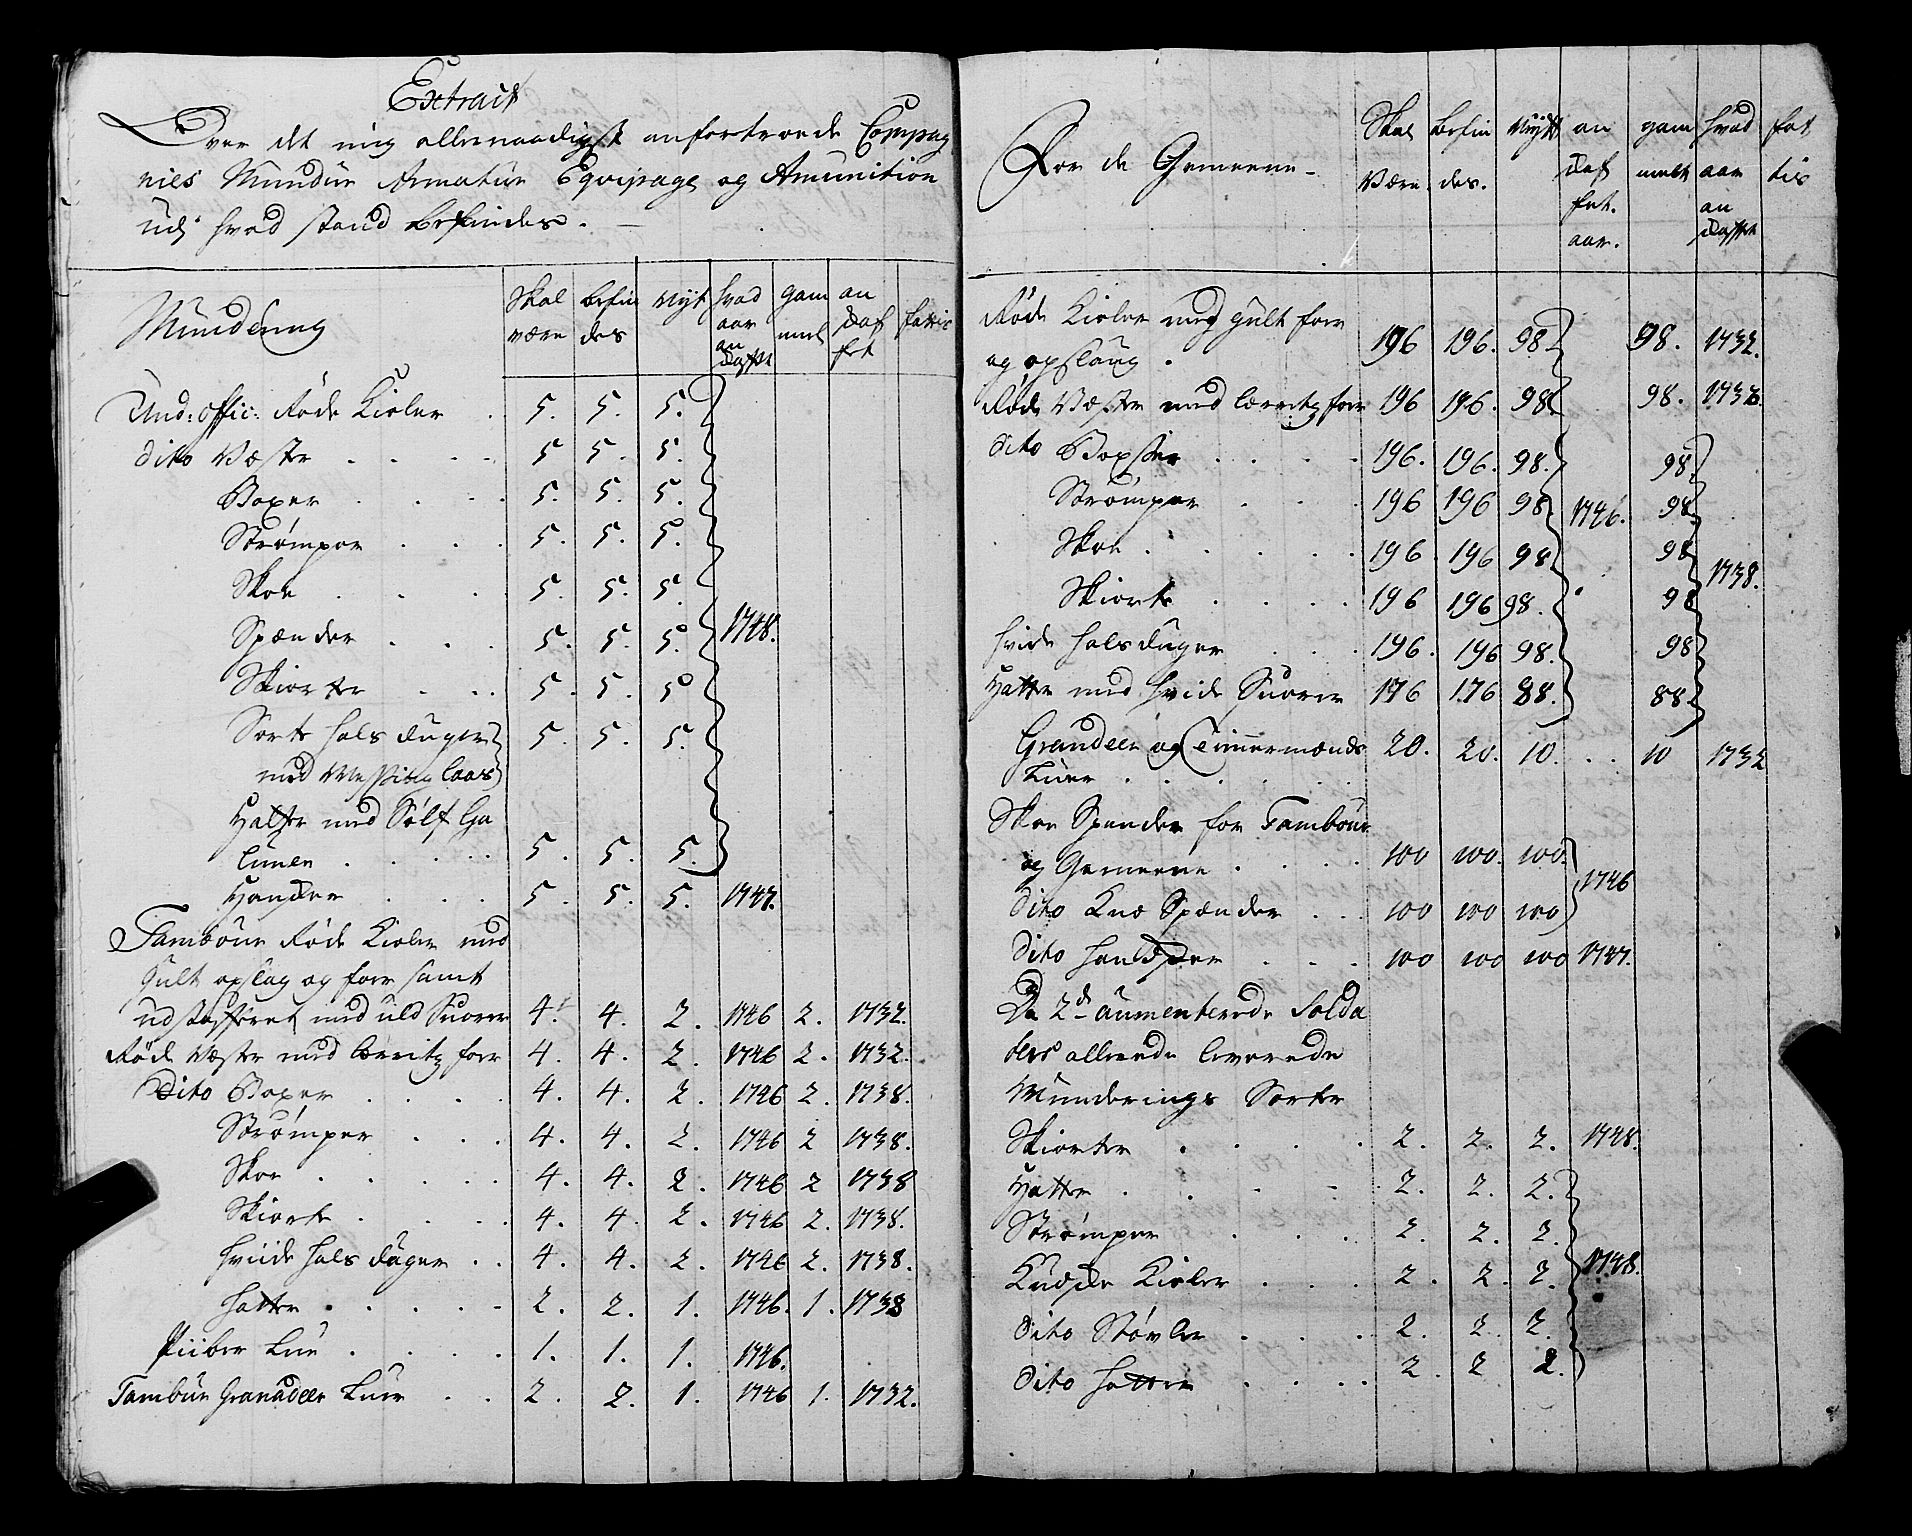 Extract
Over det mig allernaadigst anfortroede Compag
nies Mundur Armatur Eqvipage og Amunition
udj hvad stand befindes.
Mundering | Skal være | befin des | Nyt | hvad aar an Dasfet | gam mel | an Dasf fet | fattis
Und: offic: Røde Kioler . 5. 5. 5.
dito Væste . . . 5 5. 5.
Boxer . . . 5. 5. 5.
Strømper . . . 5. 5. 5.
Skoe . . . 5. 5. 5.
Spænder . . . 5. 5. 5. 1748.
Skiorter . . . 5. 5. 5
Sorte hals duger 5. 5. 5.
med Messing laas
Hatter med Sølf Ga
luner . . . . 5. 5. 5.
Handsker . . . 5. 5. 5. 1747.
Tambour Røde Kioler med
Gult opslag og foer samt
udstafferet med uld Snorer 4. 4. 2. 1746 2. 1732.
Røde Væster med lerritz foer 4. 4. 2. 1746 2. 1732.
Dito Boxer . . . . 4. 4. 2. 1746 2. 1738.
Strømper . . . 4. 4. 2. 1746 2 1738.
Skoe . . . . . 4. 4. 2. 1746 2 1738
Skiorte . . . . 4. 4. 2. 1746 2. 1738.
hviide hals duger . . 4. 4. 2. 1746 2. 1738.
hatter . . . . . 2. 2. 1. 1746. 1. 1738
Piiber Lue . . . . 1. 1. 1. 1746.
Tambur Granadeer Luer . . 2. 2. 1. 1746 1. 1732.
For de Gemeene | Skal Være | befin des. | Nyt | an Dasf fet. aar. | gam melt | hvad aar an Dasfet | fat tis
Røde Kioler med gult foer
og opslaug . 196 196. 98 98. 1732.
Røde Væster med lærritz foer 196 196. 98 98. 1732.
dito Boxser . . . . 196. 196. 98. 98.
Strømper . . . 196 196 98. 1746. 98
Skoe . . . . . 196. 196 98. 98 1738.
Skiorte . . . . 196 196 98. 98
hvide halsduger . . . 196. 196 98. 98
Hatter med hvide Snorer 176 176 88. 88.
Grandeer og Timmermænds 20. 20. 10. . . 10 1732
Luer . . . . .
Skoe Spender for Tambour
og Gemeene . . . . 100 100. 100.
Dito Knæ Spænder . . . 100 100 100 1746
Dito handsker . . . 100 100 100 1747.
De 2de aumenterede Solda
ters allerede leverede
Munderings Sorter
Skiorter . . . . 2. 2. 2. 1748.
Hatter . . . . 2. 2. 2.
Strømper . . . 2. 2. 2.
Kudske Kioler . . . 2. 2. 2. 1748.
Dito Støvler . . . 2. 2. 2.
Dito hatter . . . . 2. 2 2.